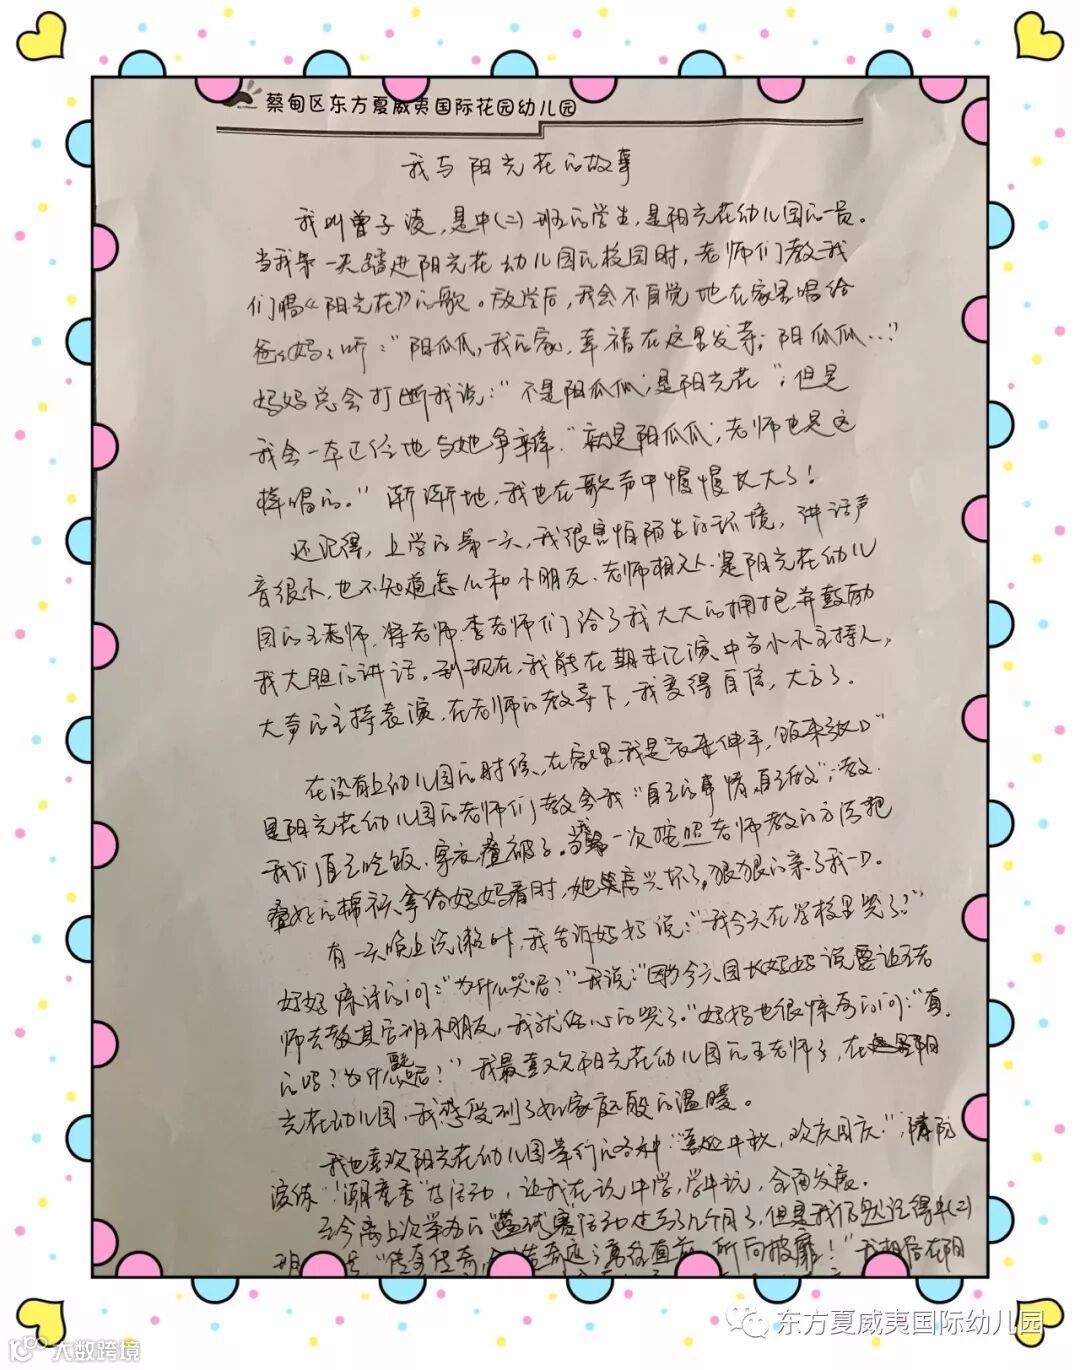 蔡甸区东方夏威夷国际花园幼儿园
我与阳光花的故事
我叫曾子凌,是中(二)班的学生,是阳光花幼儿园的一员。
当我第一天踏进阳光花幼儿园的校园时,老师们教我
们唱《阳光花》的歌。放学后,我会不自觉地在家里唱给
爸爸妈妈听:“阳瓜瓜,我的家,幸福在这里发芽;阳瓜瓜…”
妈妈总会打断我说:“不是阳瓜瓜,是阳光花”;但是
我会一本正经地与她争辩“就是阳瓜瓜,老师也是这
样唱的。”渐渐地,我也在歌声中慢慢长大了!
还记得,上学的第一天,我很害怕陌生的环境,讲话声
音很小,也不知道怎么和小朋友、老师相处.是阳光花幼儿
园的王老师,蒋老师,李老师们给了我大大的拥抱,并鼓励
我大胆的讲话。到现在,我能在期末汇演中当小小主持人,
大声的主持表演,在老师的教导下,我变得自信,大方了.
在没有上幼儿园的时候,在家里,我是衣来伸手,饭来张口”
是阳光花幼儿园的老师们教会我“自己的事情自己做”;教
我们自己吃饭,穿衣,叠被子。当第一次按照老师教的方法把
叠好的棉衣拿给妈妈看时,她高兴坏了。狠狠的亲了我一口.
有一天晚上洗漱时,我告诉妈妈说:“我今天在学校里哭了!”
妈妈惊讶的问:“为什么哭呢?”我说:“因为今天园长妈妈说要让王老
师去教其它班小朋友,我就伤心的哭了.”妈妈也很惊奇的问:“真
的吗?为什么呢?”我最喜欢阳光花幼儿园的王老师了,在阳
光花幼儿园,我感受到了如家庭般的温暖。
我也喜欢阳光花幼儿园举行的各种“喜迎中秋,欢庆国庆”,消防
演练“”等活动,让我在玩中学,学中玩,全面发展.
至今离上次举办的“篮球赛”活动过去了几个月了,但是我仍然记得中(二)
班 “传奇传奇, 造奇迹;勇往直前,所向披靡!”我相信在阳
东方夏威夷国际幼儿园
大数跨境